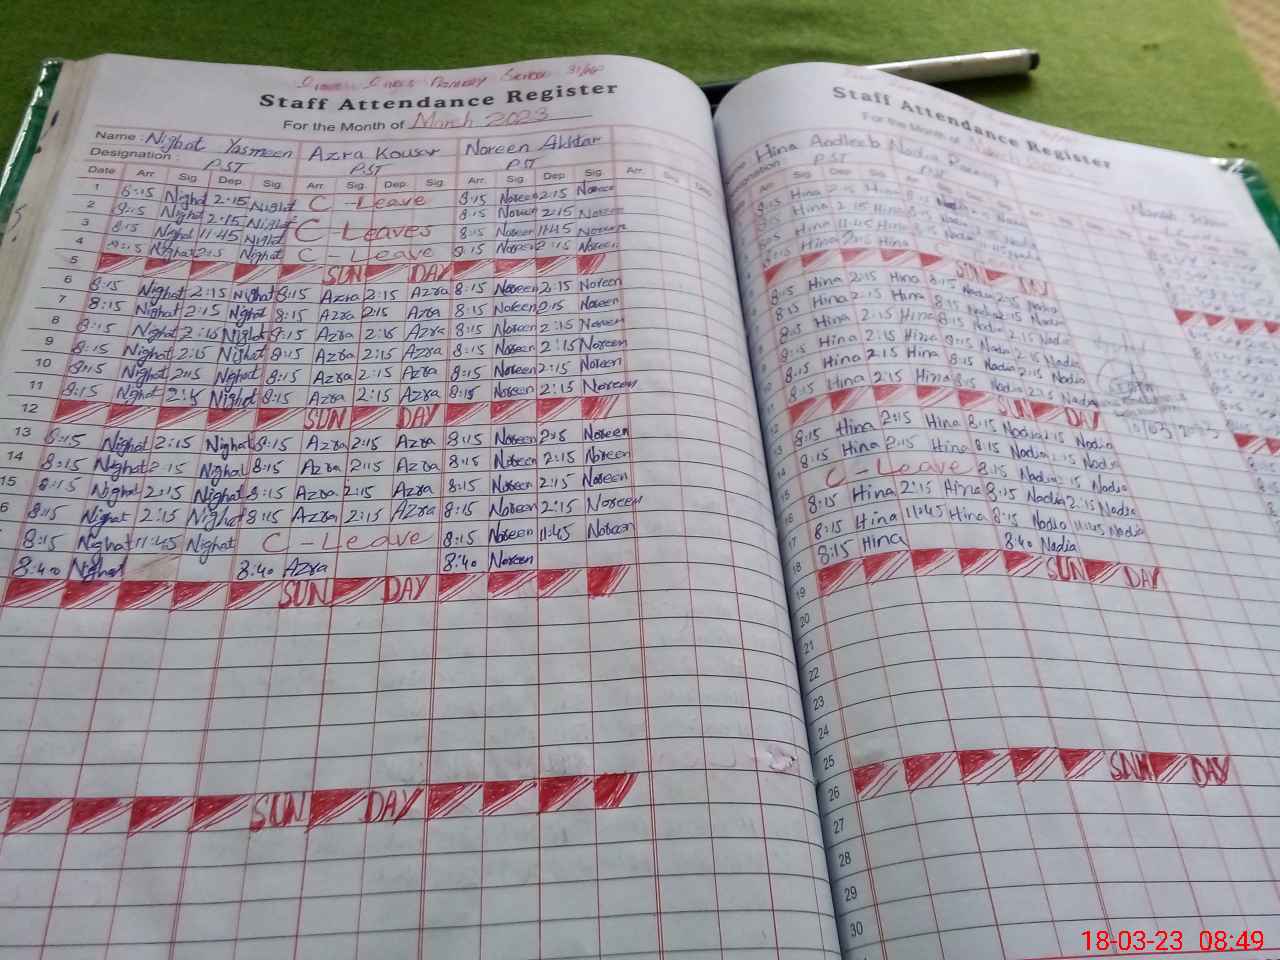 Staff Attendance Register
For the Month of March 2023
Name: Nighat Yasmeen Azra Kousar Noreen Akhtar
Designation: PST PST PST
Date Arr. Sig. Dep. Sig. Arr. Sig. Dep. Sig. Arr. Sig. Dep. Sig. Arr. Sig. Dep.
1 8:15 Nighat 2:15 Nighat C - Leave 8:15 Noreen 2:15 Noreen
2 8:15 Nighat 2:15 Nighat 8:15 Noreen 2:15 Noreen
3 8:15 Nighat 11:45 Nighat C - Leaves 8:15 Noreen 11:45 Noreen
4 8:15 Nighat 2:15 Nighat C - Leave 8:15 Noreen 2:15 Noreen
5 SUN DAY
6 8:15 Nighat 2:15 Nighat 8:15 Azra 2:15 Azra 8:15 Noreen 2:15 Noreen
7 8:15 Nighat 2:15 Nighat 8:15 Azra 2:15 Azra 8:15 Noreen 2:15 Noreen
8 8:15 Nighat 2:15 Nighat 8:15 Azra 2:15 Azra 8:15 Noreen 2:15 Noreen
9 8:15 Nighat 2:15 Nighat 8:15 Azra 2:15 Azra 8:15 Noreen 2:15 Noreen
10 8:15 Nighat 2:15 Nighat 8:15 Azra 2:15 Azra 8:15 Noreen 2:15 Noreen
11 8:15 Nighat 2:15 Nighat 8:15 Azra 2:15 Azra 8:15 Noreen 2:15 Noreen
12 SUN DAY
13 8:15 Nighat 2:15 Nighat 8:15 Azra 2:15 Azra 8:15 Noreen 2:15 Noreen
14 8:15 Nighat 2:15 Nighat 8:15 Azra 2:15 Azra 8:15 Noreen 2:15 Noreen
15 8:15 Nighat 2:15 Nighat 8:15 Azra 2:15 Azra 8:15 Noreen 2:15 Noreen
6 8:15 Nighat 2:15 Nighat 8:15 Azra 2:15 Azra 8:15 Noreen 2:15 Noreen
8:15 Nighat 11:45 Nighat C - Leave 8:15 Noreen 11:45 Noreen
8:40 Nighat 8:40 Azra 8:40 Noreen
SUN DAY
SUN DAY
Staff Attendance Register
For the Month of March
Hina Andleeb Nadia
PST
Arr. Sig. Dep.
8:15 Hina 2:15 Hina 8:15
8:15 Hina 2:15 Hina 8:15
8:15 Hina 11:45 Hina 8:15 Nadia 11:45
8:15 Hina 2:15 Hina
SUN DAY
8:15 Hina 2:15 Hina 8:15 Nadia 2:15 Nadia
8:15 Hina 2:15 Hina 8:15 Nadia 2:15 Nadia
8:15 Hina 2:15 Hina 8:15 Nadia 2:15 Nadia
8:15 Hina 2:15 Hina 8:15 Nadia 2:15 Nadia
8:15 Hina 2:15 Hina 8:15 Nadia 2:15 Nadia
8:15 Hina 2:15 Hina 8:15 Nadia 2:15 Nadia
SUN DAY
8:15 Hina 2:15 Hina 8:15 Nadia 2:15 Nadia
8:15 Hina 2:15 Hina 8:15 Nadia 2:15 Nadia
C - Leave 8:15 Nadia 2:15 Nadia
8:15 Hina 2:15 Hina 8:15 Nadia 2:15 Nadia
8:15 Hina 11:45 Hina 8:15 Nadia 11:45 Nadia
8:15 Hina 8:40 Nadia
18 SUN DAY
19
20
21
22
23
24
25 SUN DAY
26
27
28
29
30
18-03-23 08:49